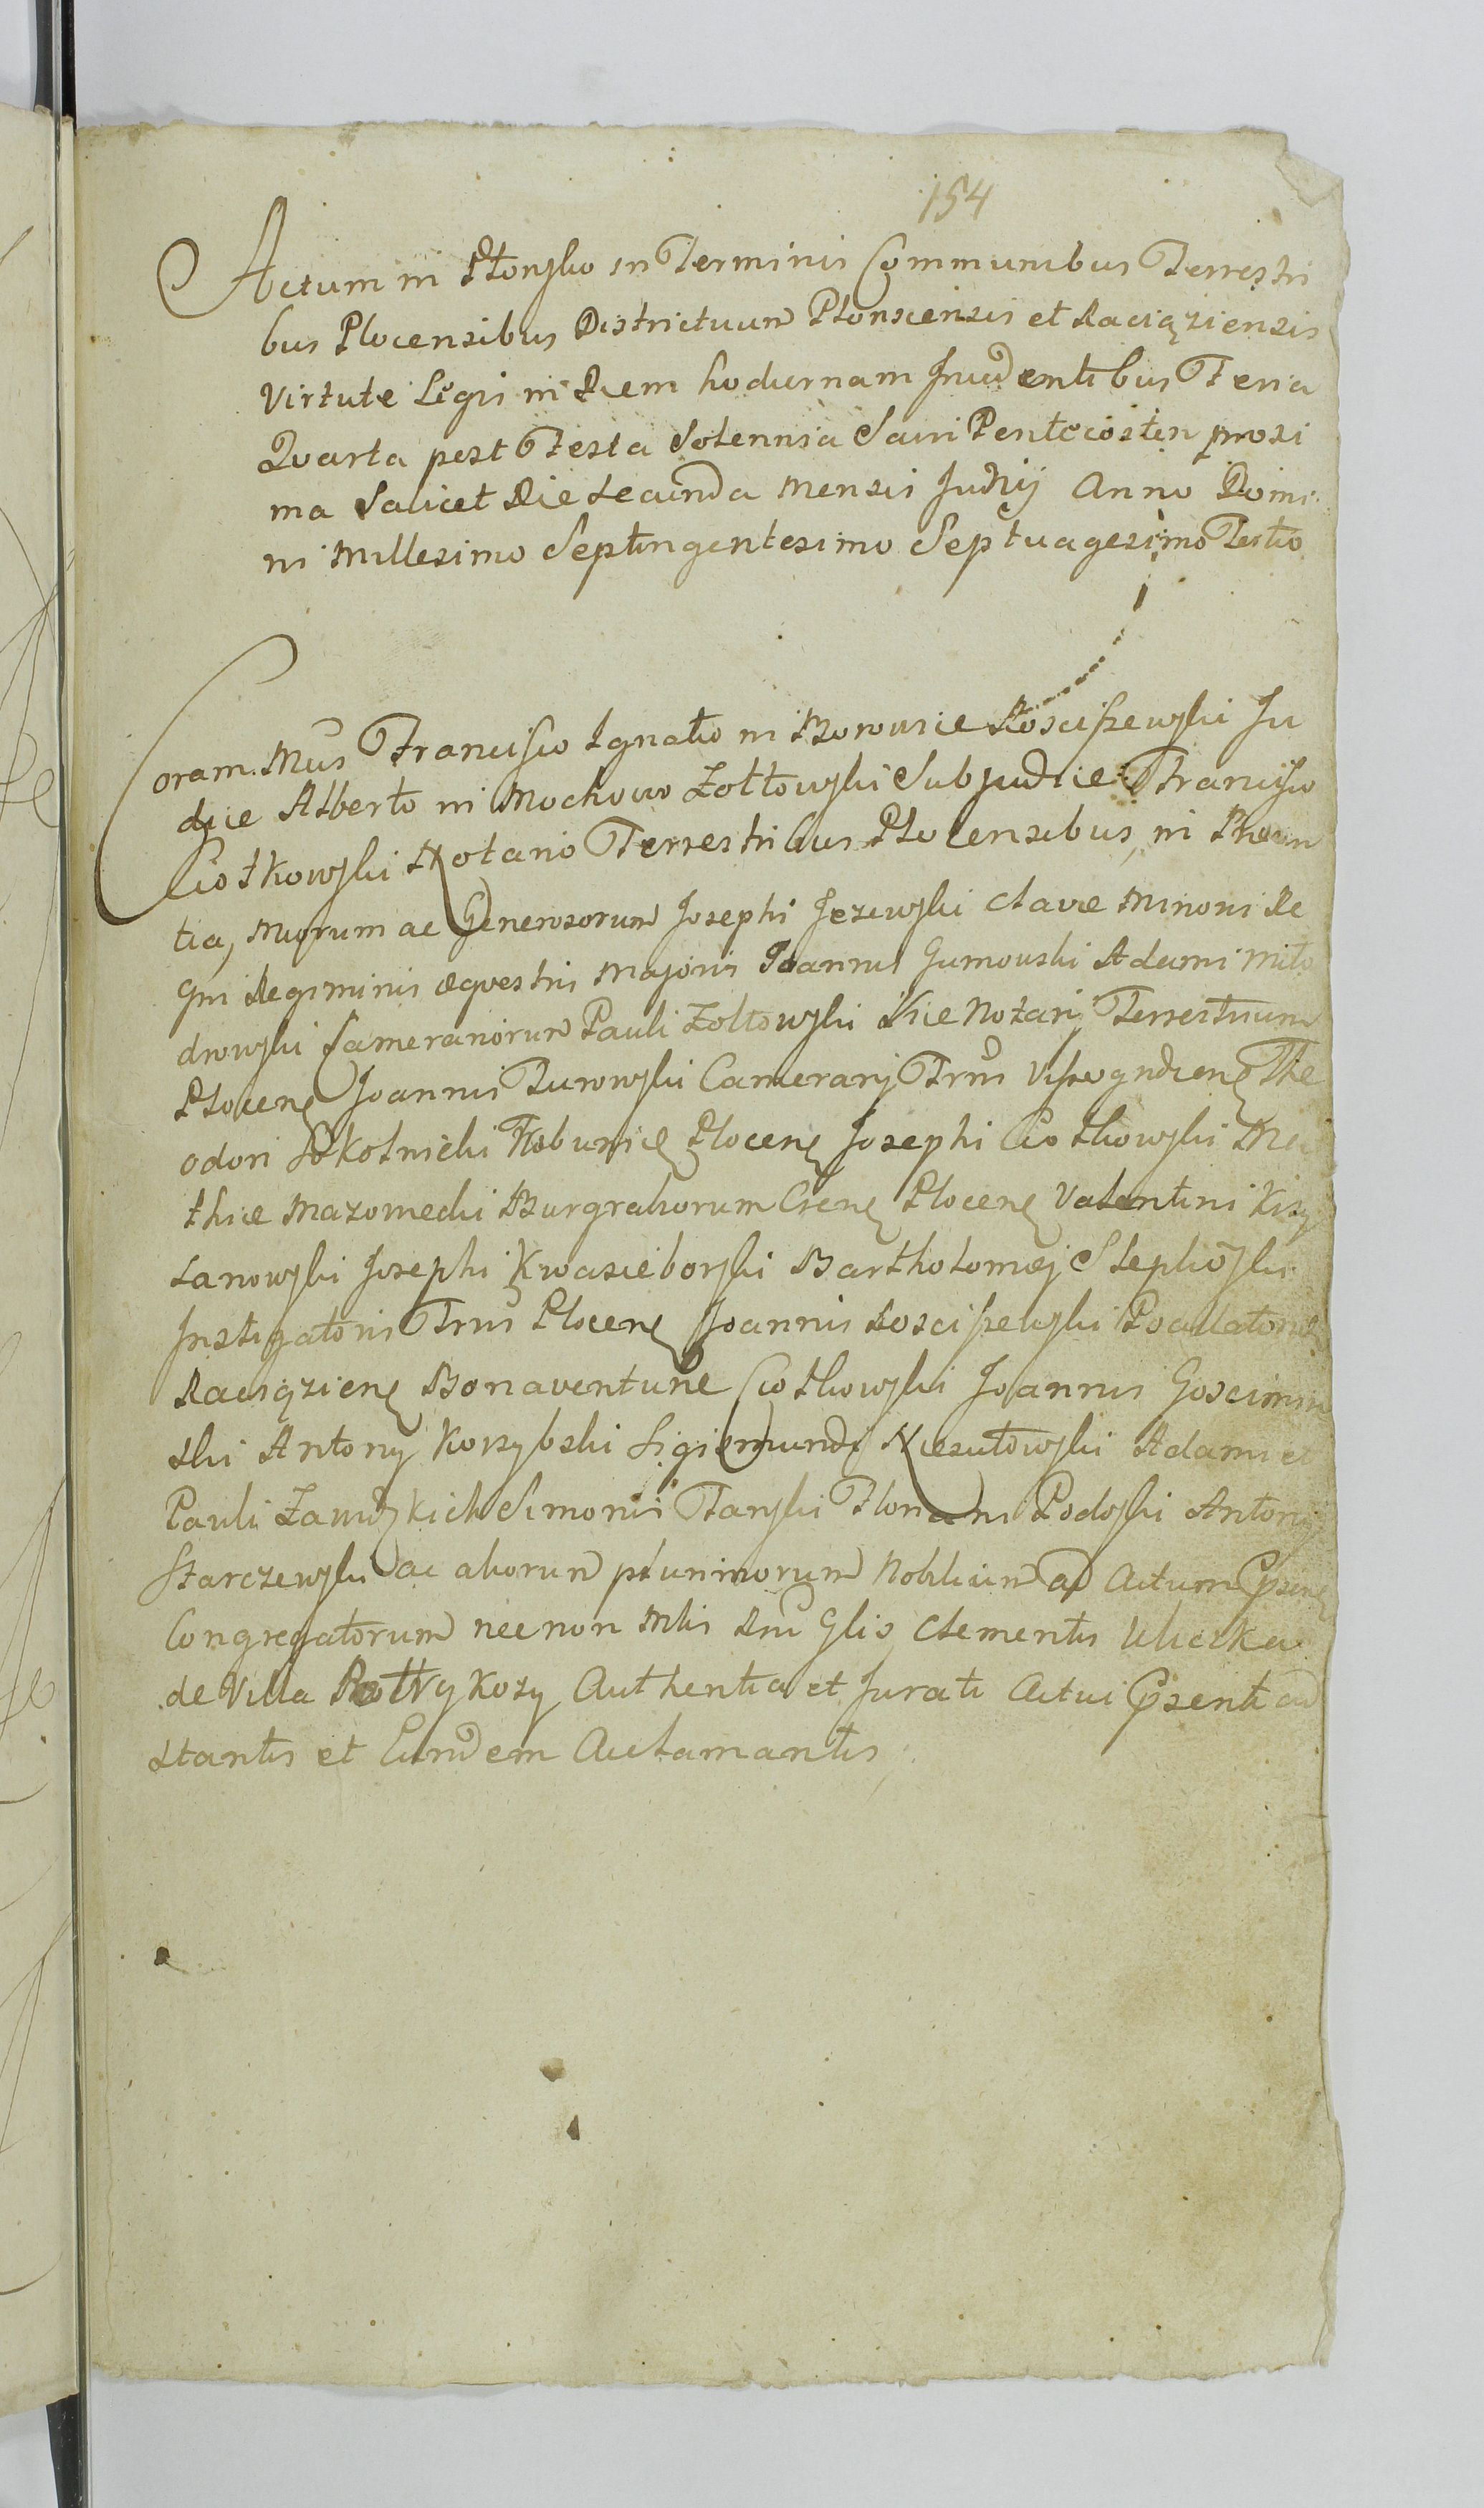 154
Actum in Płońsko in Terminis Communibus Terrestri
bus Plocensibus Districtuum Plonscensis et Raciąziensis
Virtute Legis in Diem hodiernam Incidentibus Feria
Quarta post Festa Solennia Sacri Pentecosten proxi
ma Scilicet Die Secunda Mensis Junij Anno Domi
ni Millesimo Septingentesimo Septuagesimo Tertio
Coram Mcis Francisco Ignatio in Borowice Rosciszewski Ju
dice Alberto in Mochowo Zołtowski Subjudice Francisco
Ciołkowski Notario Terrestribus Plocensibus, in Præsen
tia, Mcorum ac Generosorum Josephi Jezewski Clavæ Minoris Re
gni Regiminis æqvestris Majoris Joannis Gumowski Adami Miło
drowski Cameranorum Pauli Zołtowski Vice Notarij Terrestrium
Plocens Joannis Turowski Camerarij Trris Vissogrdiens The
odori Szkolnicki Tribunicę Plocens Josephi Ciołkowski Ma
thiæ Mazowiecki Burgrabiorum Csens Plocens Valentini Krzy
zanowski Josephi Kwasieborski Bartholomæj Stepkowski
Instigatoris Trris Plocens Joannis Rosciszewski Pocillatoris
Raciąziens Bonaventuræ Ciołkowski Joannis Goscimin
ski Antonij Korzybski Sigismundi Niesułowski Adami et
Pauli Zawidzkich Simonis Tanski Floriani Podoski Antonij
Starczewski ac aliorum plurimorum Nobilium ad Actum Præsens
Congregatorum necnon Mlis Rni Glis Clementis Uliczka
de Villa Półtrykozy Authentici et Jurati Actui Præsenti ad
stantis et Eundem Acclamantis